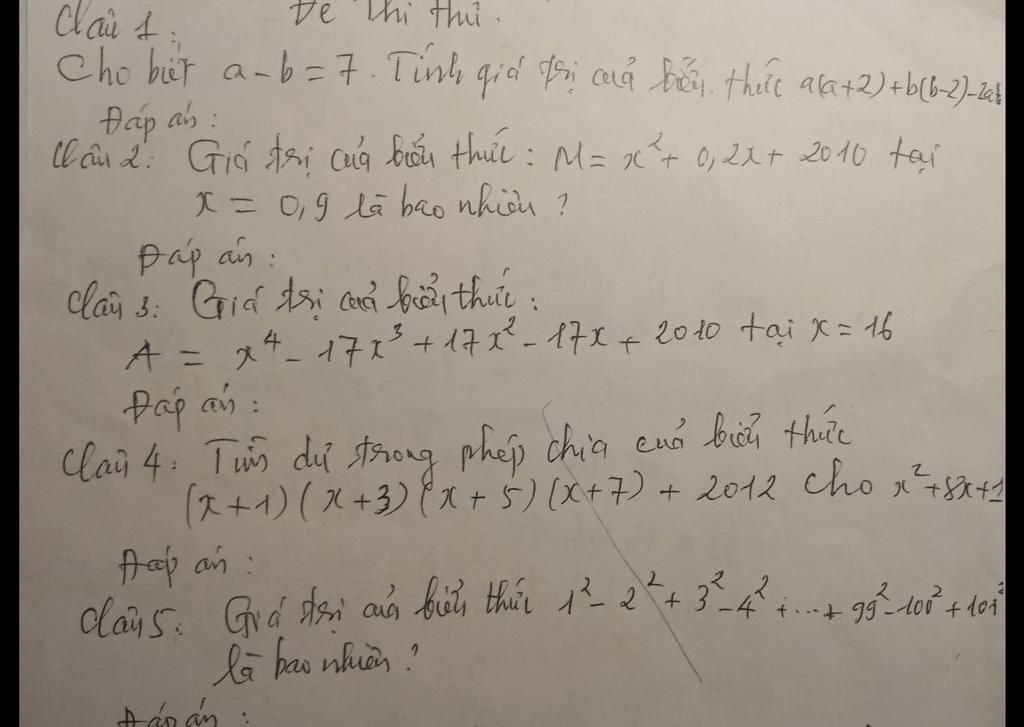 Đề thi thử.
Câu 1:
Cho biết a - b = 7. Tính giá trị của biểu thức a(a+2) + b(b-2) - 2ab
Đáp án:
Câu 2: Giá trị của biểu thức: M = x² + 0,2x + 2010 tại
x = 0,9 là bao nhiêu?
Đáp án:
Câu 3: Giá trị của biểu thức:
A = x⁴ - 17x³ + 17x² - 17x + 2010 tại x = 16
Đáp án:
Câu 4: Tìm dư trong phép chia của biểu thức
(x+1)(x+3)(x+5)(x+7) + 2012 cho x² + 8x + 1
Đáp án:
Câu 5: Giá trị của biểu thức 1² - 2² + 3² - 4² + ... + 99² - 100² + 101²
là bao nhiêu?
Đáp án: